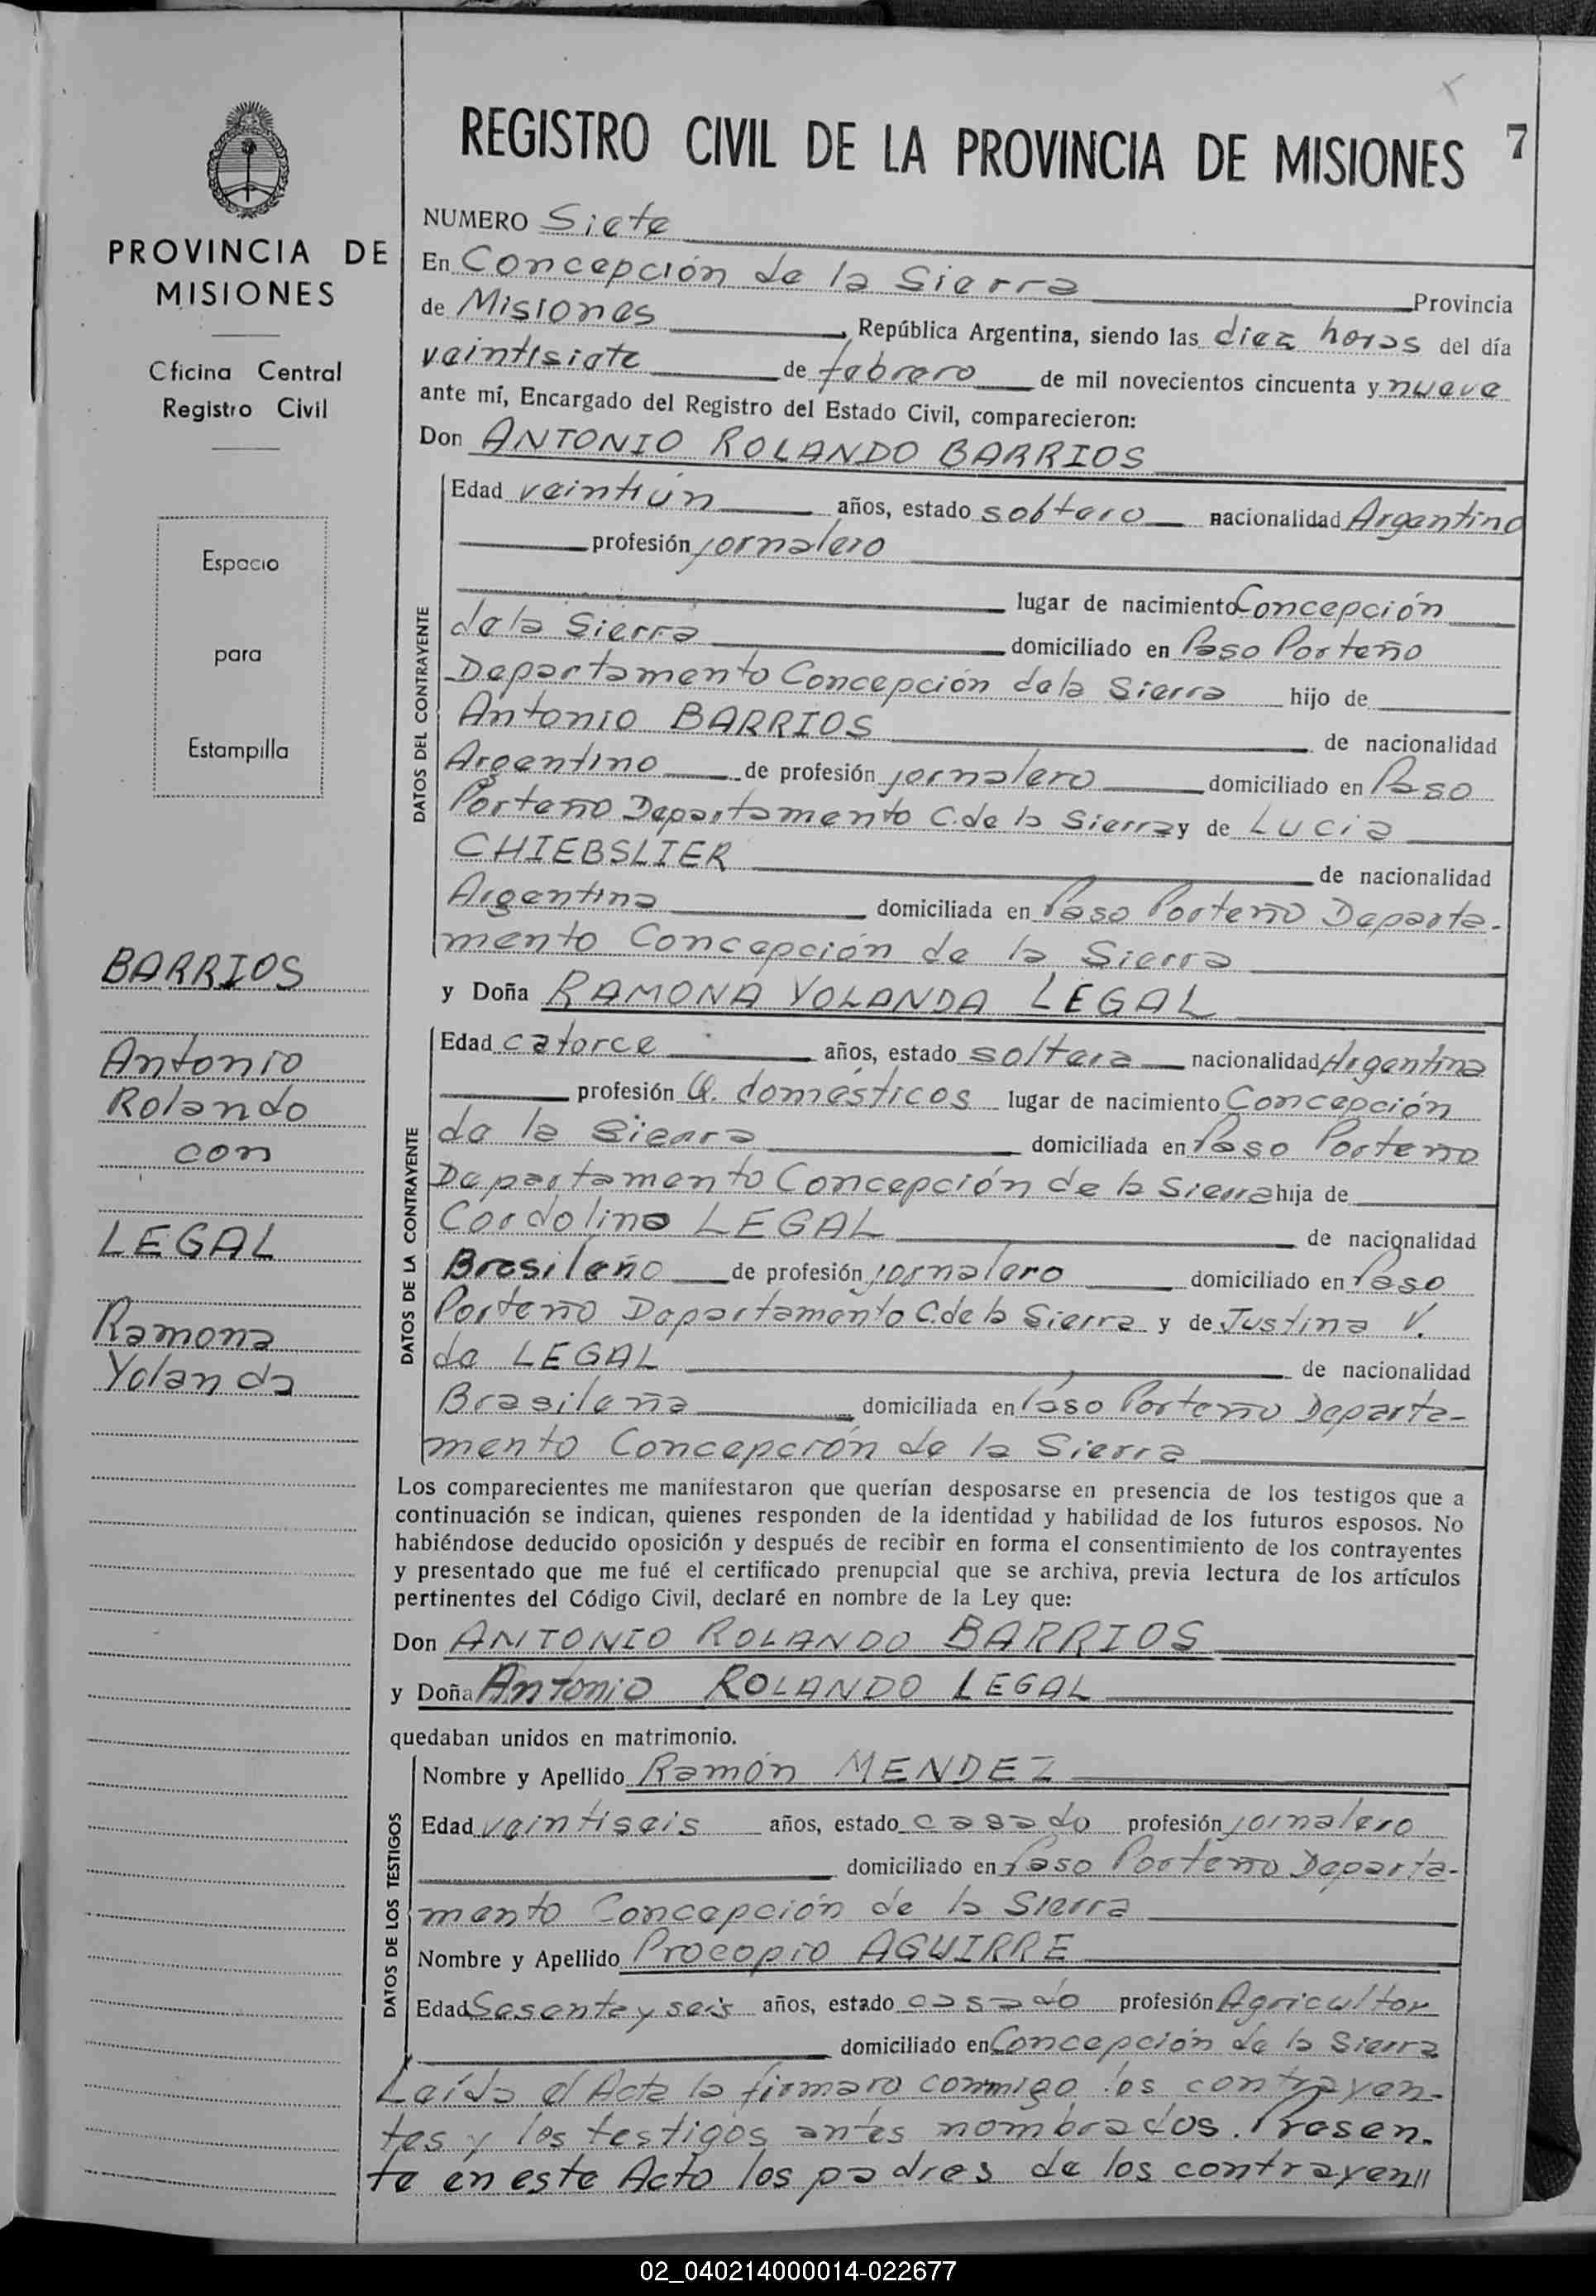 REGISTRO CIVIL DE LA PROVINCIA DE MISIONES 7
PROVINCIA DE
MISIONES
Oficina Central
Registro Civil
Espacio
para
Estampilla
BARRIOS
Antonio
Rolando
con
LEGAL
Ramona
Yolanda
NUMERO Siete
En Concepción de la Sierra Provincia
de Misiones, República Argentina, siendo las diez horas del día
veintisiete de febrero de mil novecientos cincuenta y nueve
ante mí, Encargado del Registro del Estado Civil, comparecieron:
Don ANTONIO ROLANDO BARRIOS
DATOS DEL CONTRAYENTE
Edad veintiún años, estado soltero nacionalidad Argentino
profesión jornalero
lugar de nacimiento Concepción
de la Sierra domiciliado en Paso Porteño
Departamento Concepción de la Sierra hijo de
Antonio BARRIOS de nacionalidad
Argentino de profesión jornalero domiciliado en Paso
Porteño Departamento C. de la Sierra y de Lucia
CHIEBSLIER de nacionalidad
Argentina domiciliada en Paso Porteño Departa-
mento Concepción de la Sierra
y Doña RAMONA YOLANDA LEGAL
DATOS DE LA CONTRAYENTE
Edad catorce años, estado soltera nacionalidad Argentina
profesión Q. domésticos lugar de nacimiento Concepción
de la Sierra domiciliada en Paso Porteño
Departamento Concepción de la Sierra hija de
Cordolino LEGAL de nacionalidad
Brasileño de profesión jornalero domiciliado en Paso
Porteño Departamento C. de la Sierra y de Justina V.
de LEGAL de nacionalidad
Brasileña domiciliada en Paso Porteño Departa-
mento Concepción de la Sierra
Los comparecientes me manifestaron que querían desposarse en presencia de los testigos que a
continuación se indican, quienes responden de la identidad y habilidad de los futuros esposos. No
habiéndose deducido oposición y después de recibir en forma el consentimiento de los contrayentes
y presentado que me fué el certificado prenupcial que se archiva, previa lectura de los artículos
pertinentes del Código Civil, declaré en nombre de la Ley que:
Don ANTONIO ROLANDO BARRIOS
y Doña Antonio ROLANDO LEGAL
quedaban unidos en matrimonio.
DATOS DE LOS TESTIGOS
Nombre y Apellido Ramón MENDEZ
Edad veintiseis años, estado casado profesión jornalero
domiciliado en Paso Porteño Departa-
mento Concepción de la Sierra
Nombre y Apellido Procopio AGUIRRE
Edad Sesenta y seis años, estado casado profesión Agricultor
domiciliado en Concepción de la Sierra
Leída el Acta la firmaro conmigo los contrayen-
tes y los testigos antes nombrados. Presen-
te en este Acto los padres de los contrayen//
02_040214000014-022677